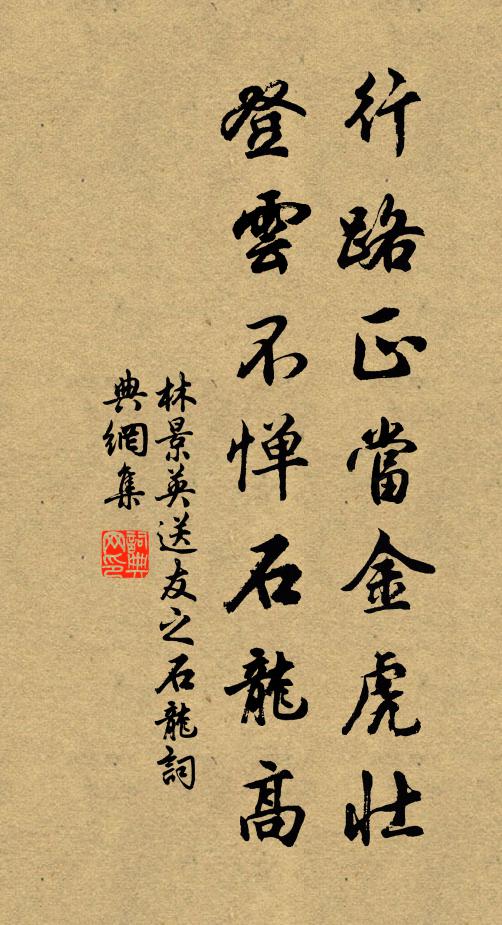 行路正當金虎壯
登雲不惮石龍高
林景英送友之石龍詞
典網集
詞典网印